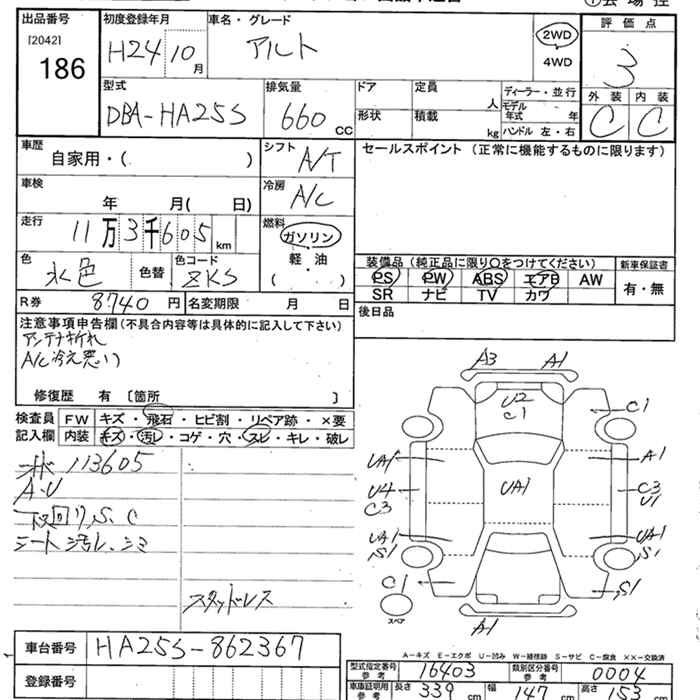 出品番号 [2042] 186
初度登録年月 H24 10月
車名・グレード アルト
2WD
4WD
評価点 3
外装 C 内装 C
型式 DBA-HA25S
排気量 660 CC
ドア
形状
定員 人
積載 kg
ディーラー・並行
モデル年式 年
ハンドル 左・右
車歴 自家用・( )
シフト A/T
セールスポイント (正常に機能するものに限ります)
車検 年 月( 日)
冷房 A/C
走行 11万3千605 km
燃料 ガソリン
軽・油
( ・ )
色 水色 色替 色コード ZKS
装備品 (純正品に限り○をつけてください)
新車保証書
PS PW ABS エアB AW
SR ナビ TV カワ
有・無
R券 8740 円 名変期限 月 日
後日品
注意事項申告欄 (不具合内容等は具体的に記入して下さい)
アンテナ折れ
A/C冷え悪い
修復歴 有 〔箇所 〕
検査員 FW キズ・飛石・ヒビ割・リペア跡・×要
記入欄 内装 キズ・汚レ・コゲ・穴・スレ・キレ・破レ
113605
A・U
下回り,S、C
シート汚レ、シミ
スタッドレス
A3 A1
U2
C1
C1
UA1 A1
U4 UA1 C3
C3 U1
UA1 UA1
S1 S1
C1 S1
スペア
A1
車台番号 HA25S-862367
登録番号
A-キズ E-エクボ U-凹み W-補修跡 S-サビ C-腐食 ××-交換済
型式指定番号 参考 16403 類別区分番号 参考 0004
車庫証明用 参考 長さ 339 cm 幅 147 cm 高さ 153 cm